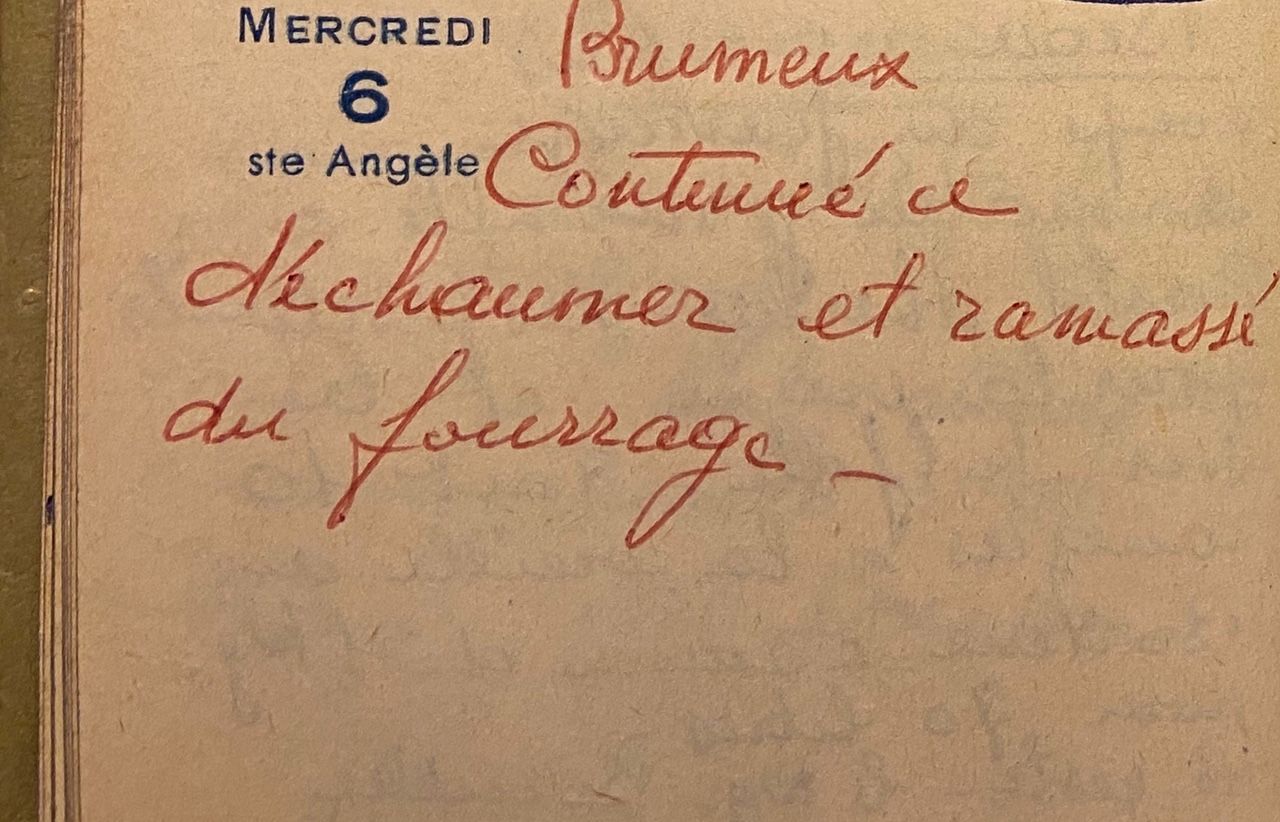 MERCREDI Brumeux
6
ste Angèle Contenué a
déchaumer et ramassé
du fourrage –